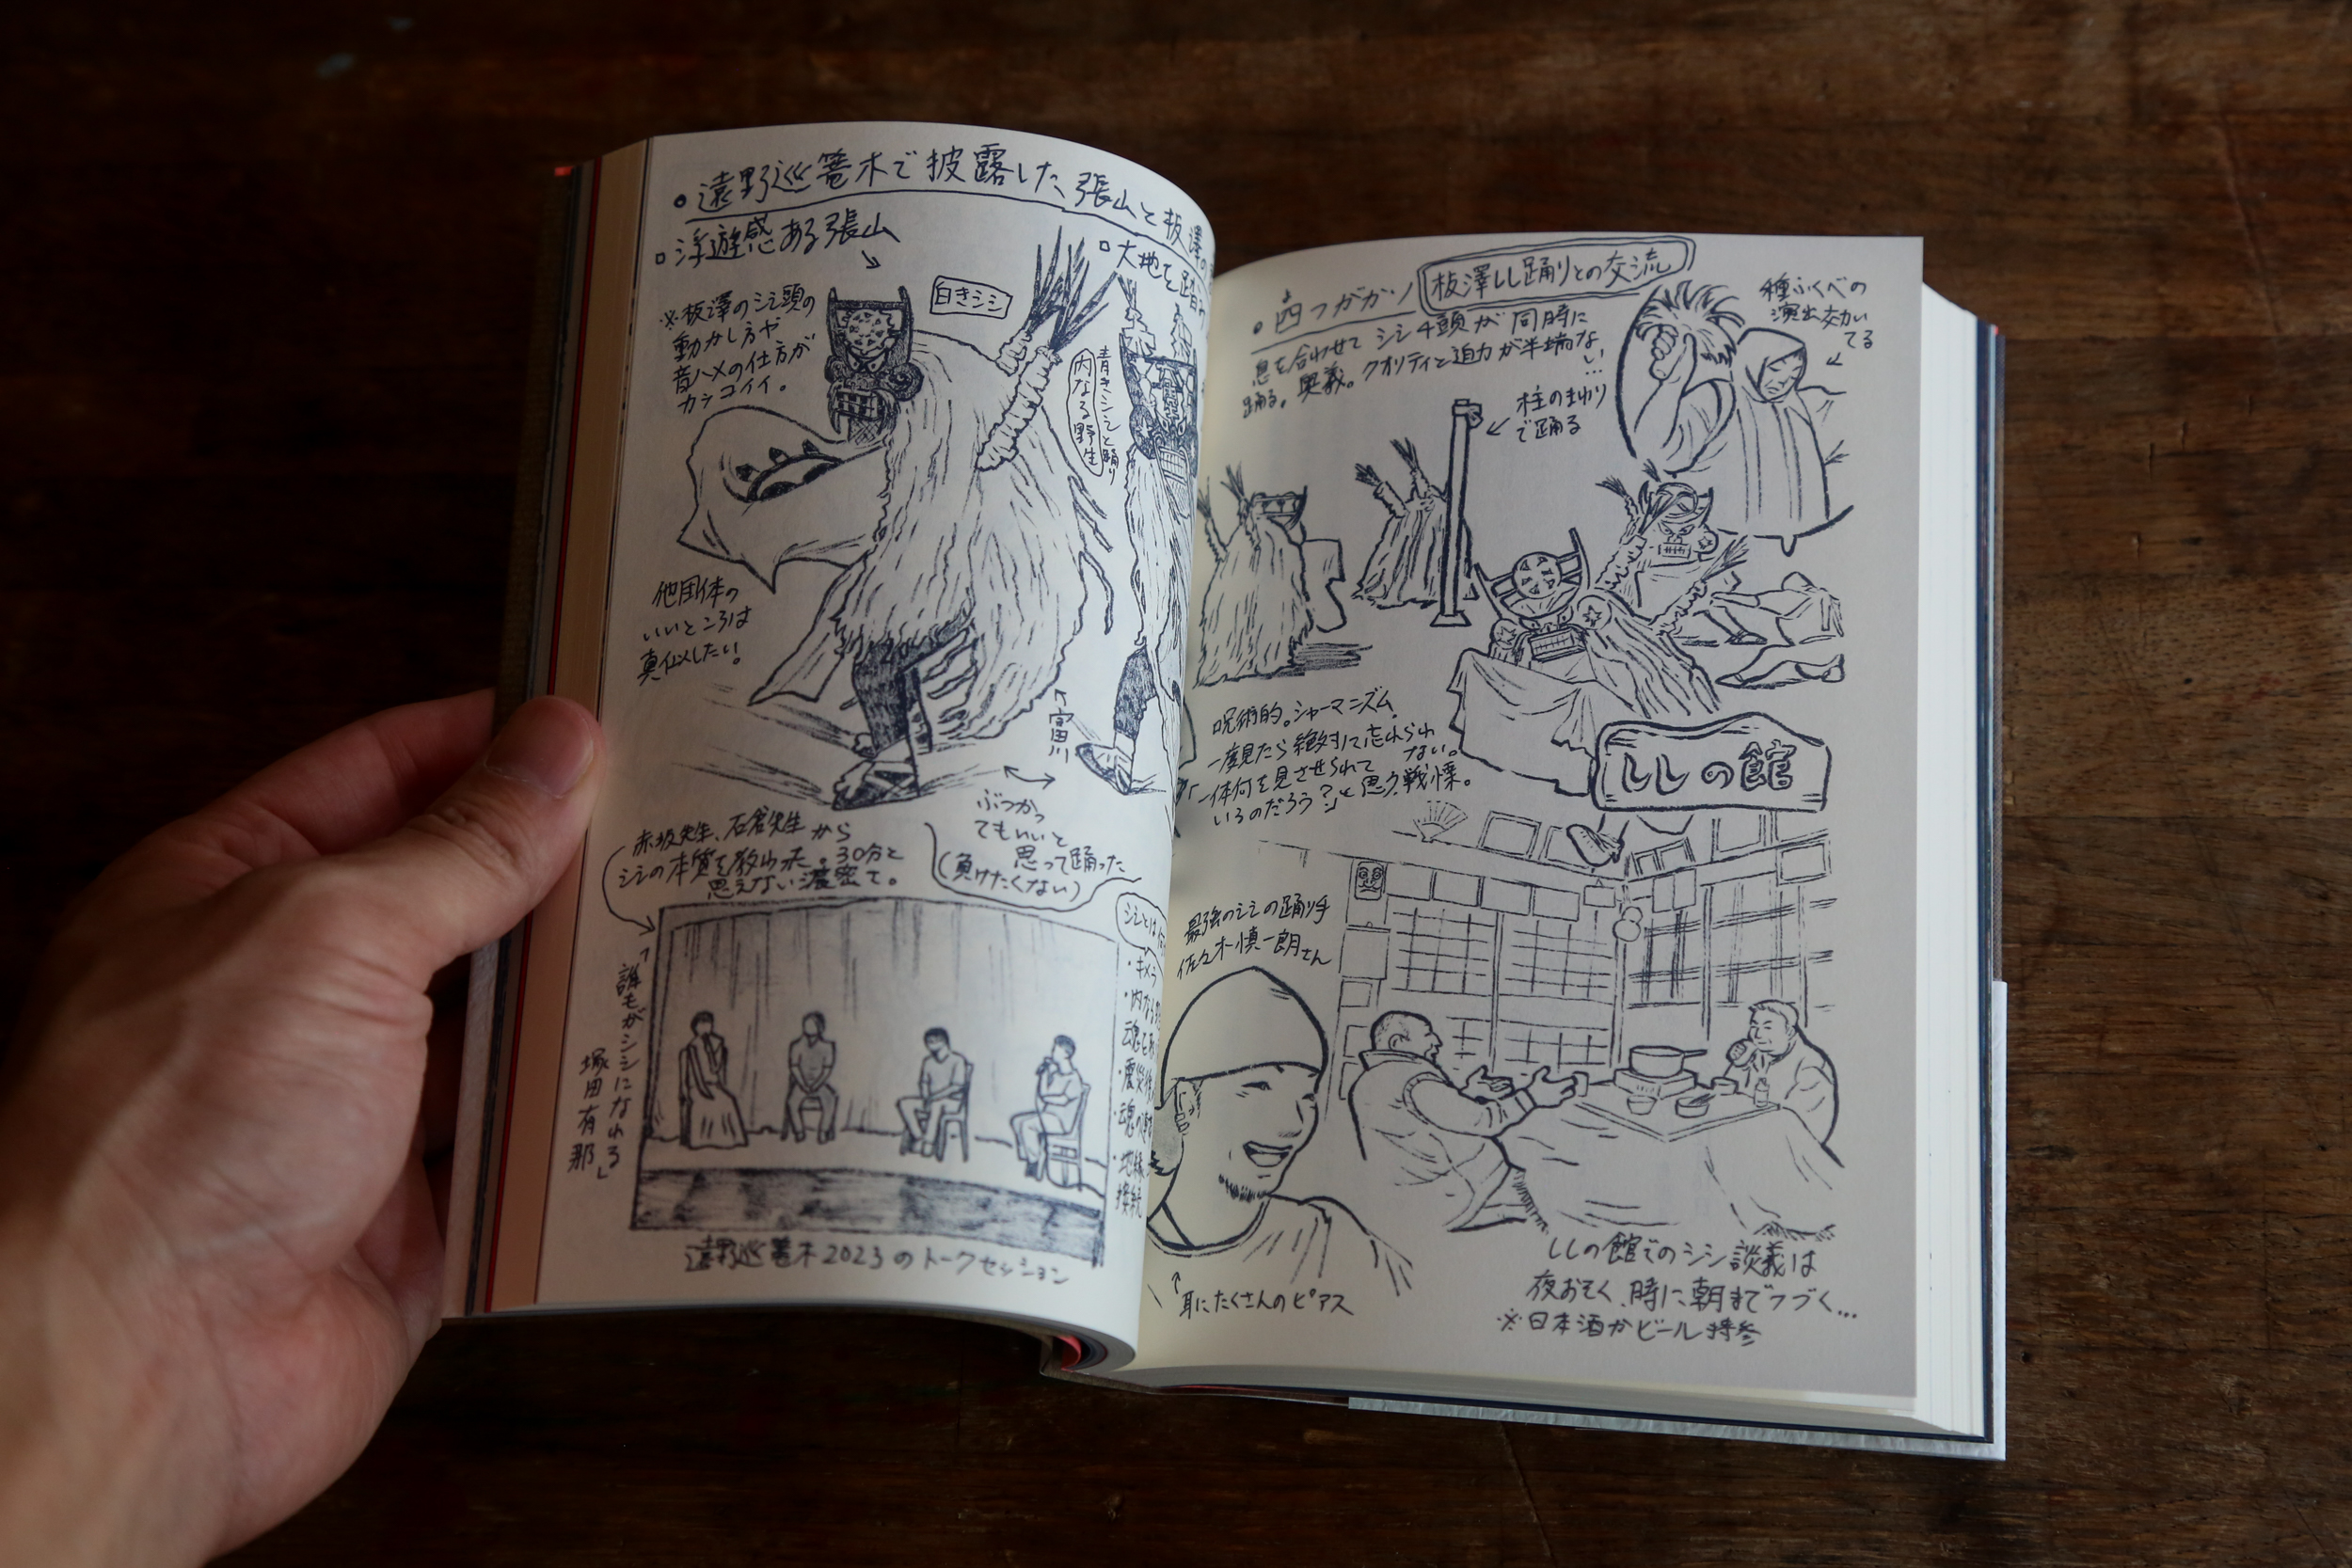 遠野巡篭木で披露した張山と板澤の
浮遊感ある張山
大地を踏
※板澤のシシ頭の
動かし方や
音ハメの仕方が
カッコイイ。
白きシシ
青きシシと踊り
内なる野生
他団体の
いいところは
真似したい。
富田川
ぶつかっ
てもいいと
思って踊った
(負けたくない)
赤坂先生、石倉先生から
シシの本質を教わった。30分と
思えない濃密て。
「誰もがシシになれる」
塚田有那
シシとは
・キメラ
・内なる
・震災
・地縁
接続
遠野巡篭木2023のトークセッション
四つがかり
板澤しし踊りとの交流
シシ4頭が同時に
息を合わせて
踊る。奥義。クオリティと迫力が半端な
い…
種ふくべの
演出効い
てる
柱のまわり
で踊る
呪術的。シャーマニズム。
一度見たら絶対に忘れられ
ない。
「一体何を見させられて
いるのだろう?」と思う戦慄。
ししの館
最強のシシの踊り手
佐々木慎一朗さん
耳にたくさんのピアス
ししの館でのシシ談義は
夜おそく、時に朝までつづく…
※日本酒かビール持参